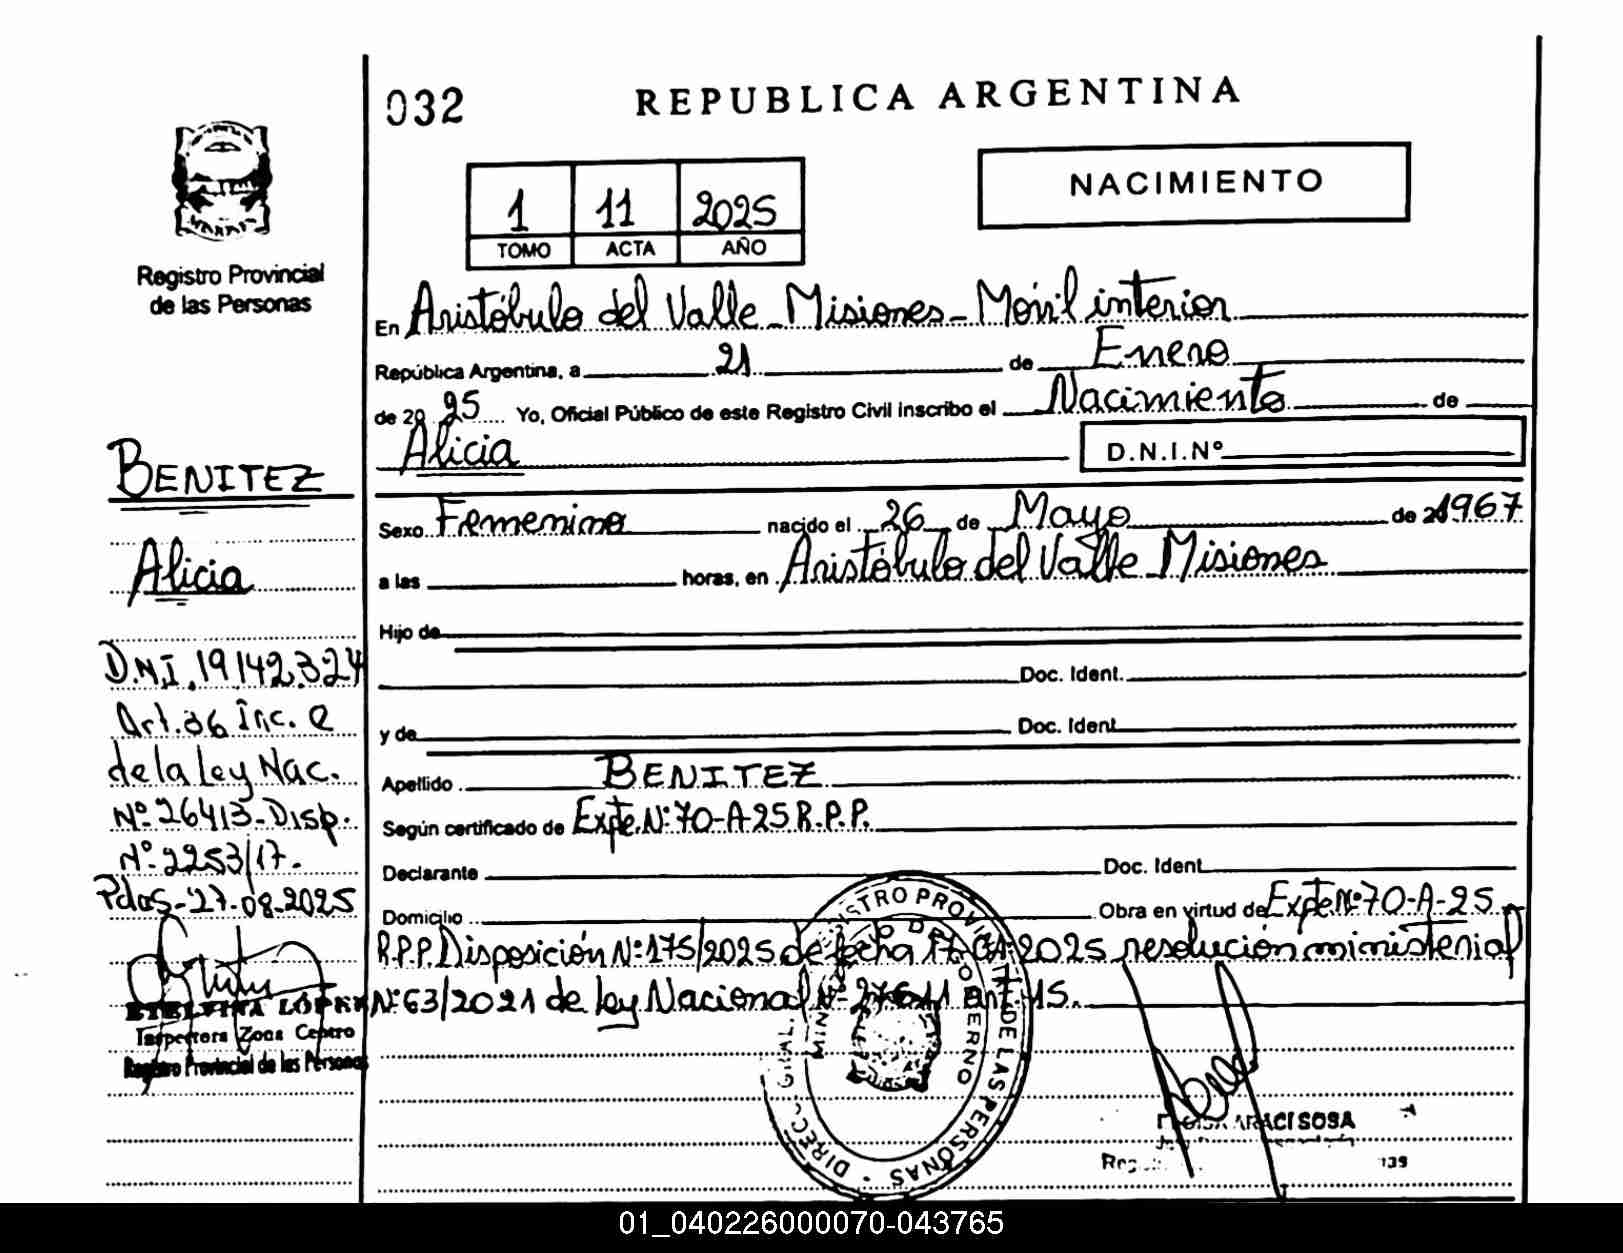 032
REPUBLICA ARGENTINA
NACIMIENTO
1 11 2025
TOMO ACTA AÑO
Registro Provincial
de las Personas
En Aristóbulo del Valle - Misiones - Móvil interior
República Argentina, a 21 de Enero
de 20 25 Yo, Oficial Público de este Registro Civil inscribo el Nacimiento de
Alicia
D.N.I.Nº
Sexo Femenino nacido el 26 de Mayo de 1967
a las horas, en Aristóbulo del Valle Misiones
Hijo de
Doc. Ident.
y de Doc. Ident.
Apellido BENITEZ
Según certificado de Expte. Nº 70-A-25 R.P.P.
Declarante Doc. Ident.
Domicilio Obra en virtud de Expte Nº 70-A-25
R.P.P. Disposición Nº 175/2025 de fecha 2025 resolución ministerial
Nº 63/2021 de Ley Nacional Nº 27611 art. 15.
BENITEZ
Alicia
D.N.I. 19142324
Art. 36 Inc. e
de la Ley Nac.
Nº 26413 - Disp.
Nº 2253/17.
Pdas - 27-08-2025
ETELVINA LOPEZ
Inspectora Zona Centro
Registro Provincial de las Personas
REGISTRO PROVINCIAL DE LAS PERSONAS
MINISTERIO DE GOBIERNO
ARACI SOSA
01_040226000070-043765